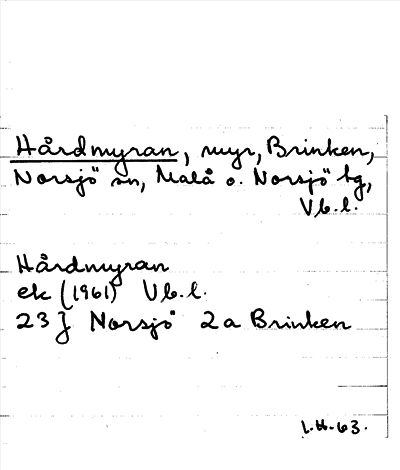 Hårdmyran, myr, Brinken,
Norsjö sn, Malå o. Norsjö tg,
Vb.l.
Hårdmyran
ek (1961) Vb.l.
23J Norsjö 2a Brinken
L.H.-63.